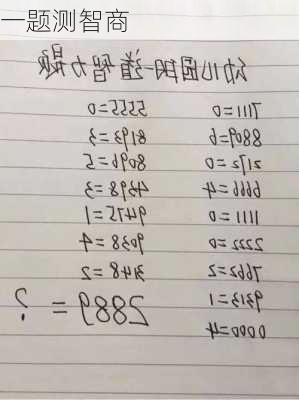 一题测智商
幼儿园的一道智力题
7111=0 5555=0
8809=6 8193=3
2172=0 8096=5
6666=4 4398=3
1111=0 9475=1
2222=0 9038=4
7662=2 3148=2
9313=1 2889=?
0000=4